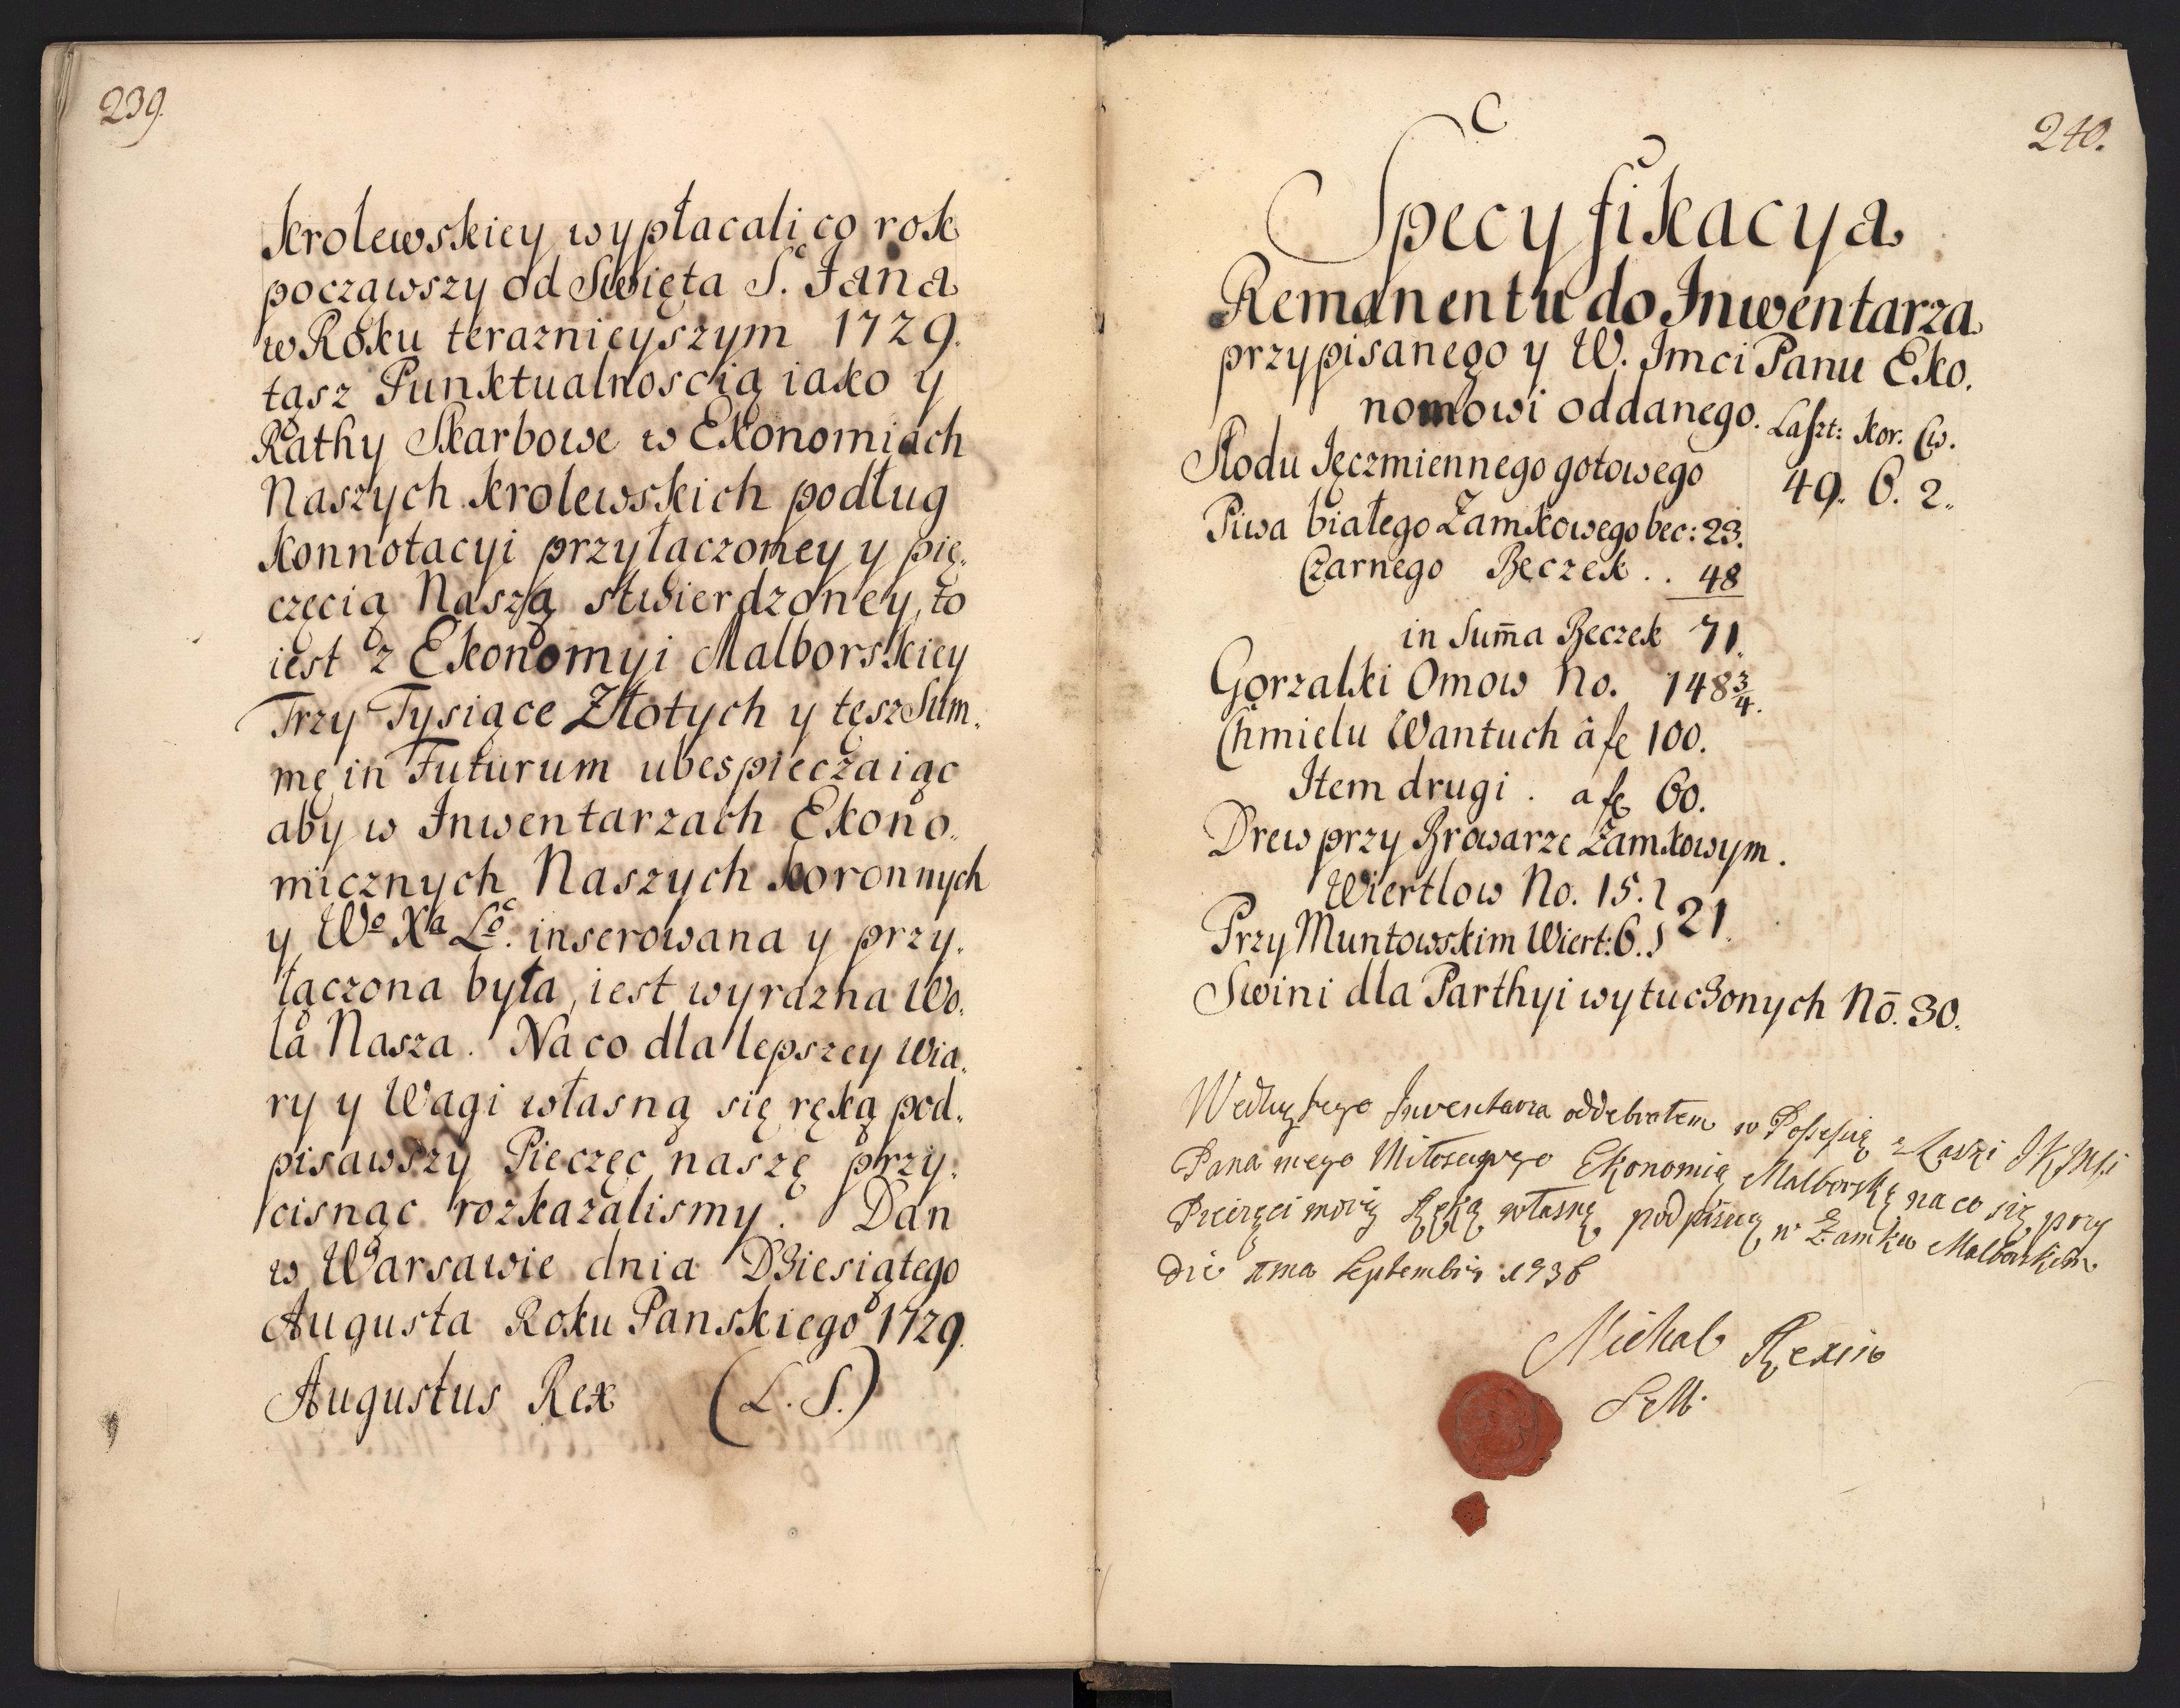 239.
krolewskiey wypłacali co rok
począwszy od Swięta S. Jana
w Roku teraznieyszym 1729.
tąsz Punktualnoscią iako y
Rathy Skarbowe w Ekonomiach
Naszych krolewskich podług
konnotacyi przyłaczoney y pię„
częcią Naszą stwierdzoney, to
iest z Ekonomyi Malborskiey
Trzy Tysiące Złotych y tęsz Sum„
mę in Futurum ubespieczaiąc
aby w Inwentarzach Ekono„
micznych Naszych koronnych
y Wo Xa Lo. inserowana y przy„
łączona była, iest wyrazna Wo„
la Nasza. Na co dla lepszey Wia„
ry y Wagi własną się ręką pod„
pisawszy Pieczęc naszę przy„
cisnąc rozkazalismy. Dan
w Warsawie dnia Dziesiątego
Augusta Roku Panskiego 1729.
Augustus Rex (L. S.)
240.
Specyfikacya
Remanentu do Inwentarza
przypisanego y W. Jmci Panu Eko„
nomowi oddanego. Laszt: kor. Cw.
Słodu Jęczmiennego gotowego 49. 6. 2.
Piwa białego Zamkowego bec: 23.
Czarnego Beczek . . 48
in Sum̄a Beczek 71.
Gorzalki Omow No. 148 3/4.
Chmielu Wantuch â 100.
Item drugi . a 60.
Drew przy Browarze Zamkowym.
Wiertlow No. 15. } 21.
Przy Muntowskim Wiert: 6.
Swini dla Parthyi wytuczonych Nō. 30.
Według tego Inwentarza oddebrałem w Possesię z Łaski JKMsci
Pana mego Miłosciwego Ekonomią Malborską na co się przy
Pieczęci moiey Ręką własną podpisuię w Zamku Malborskim
Die 1ma Septembris 1736
Michal Rexin